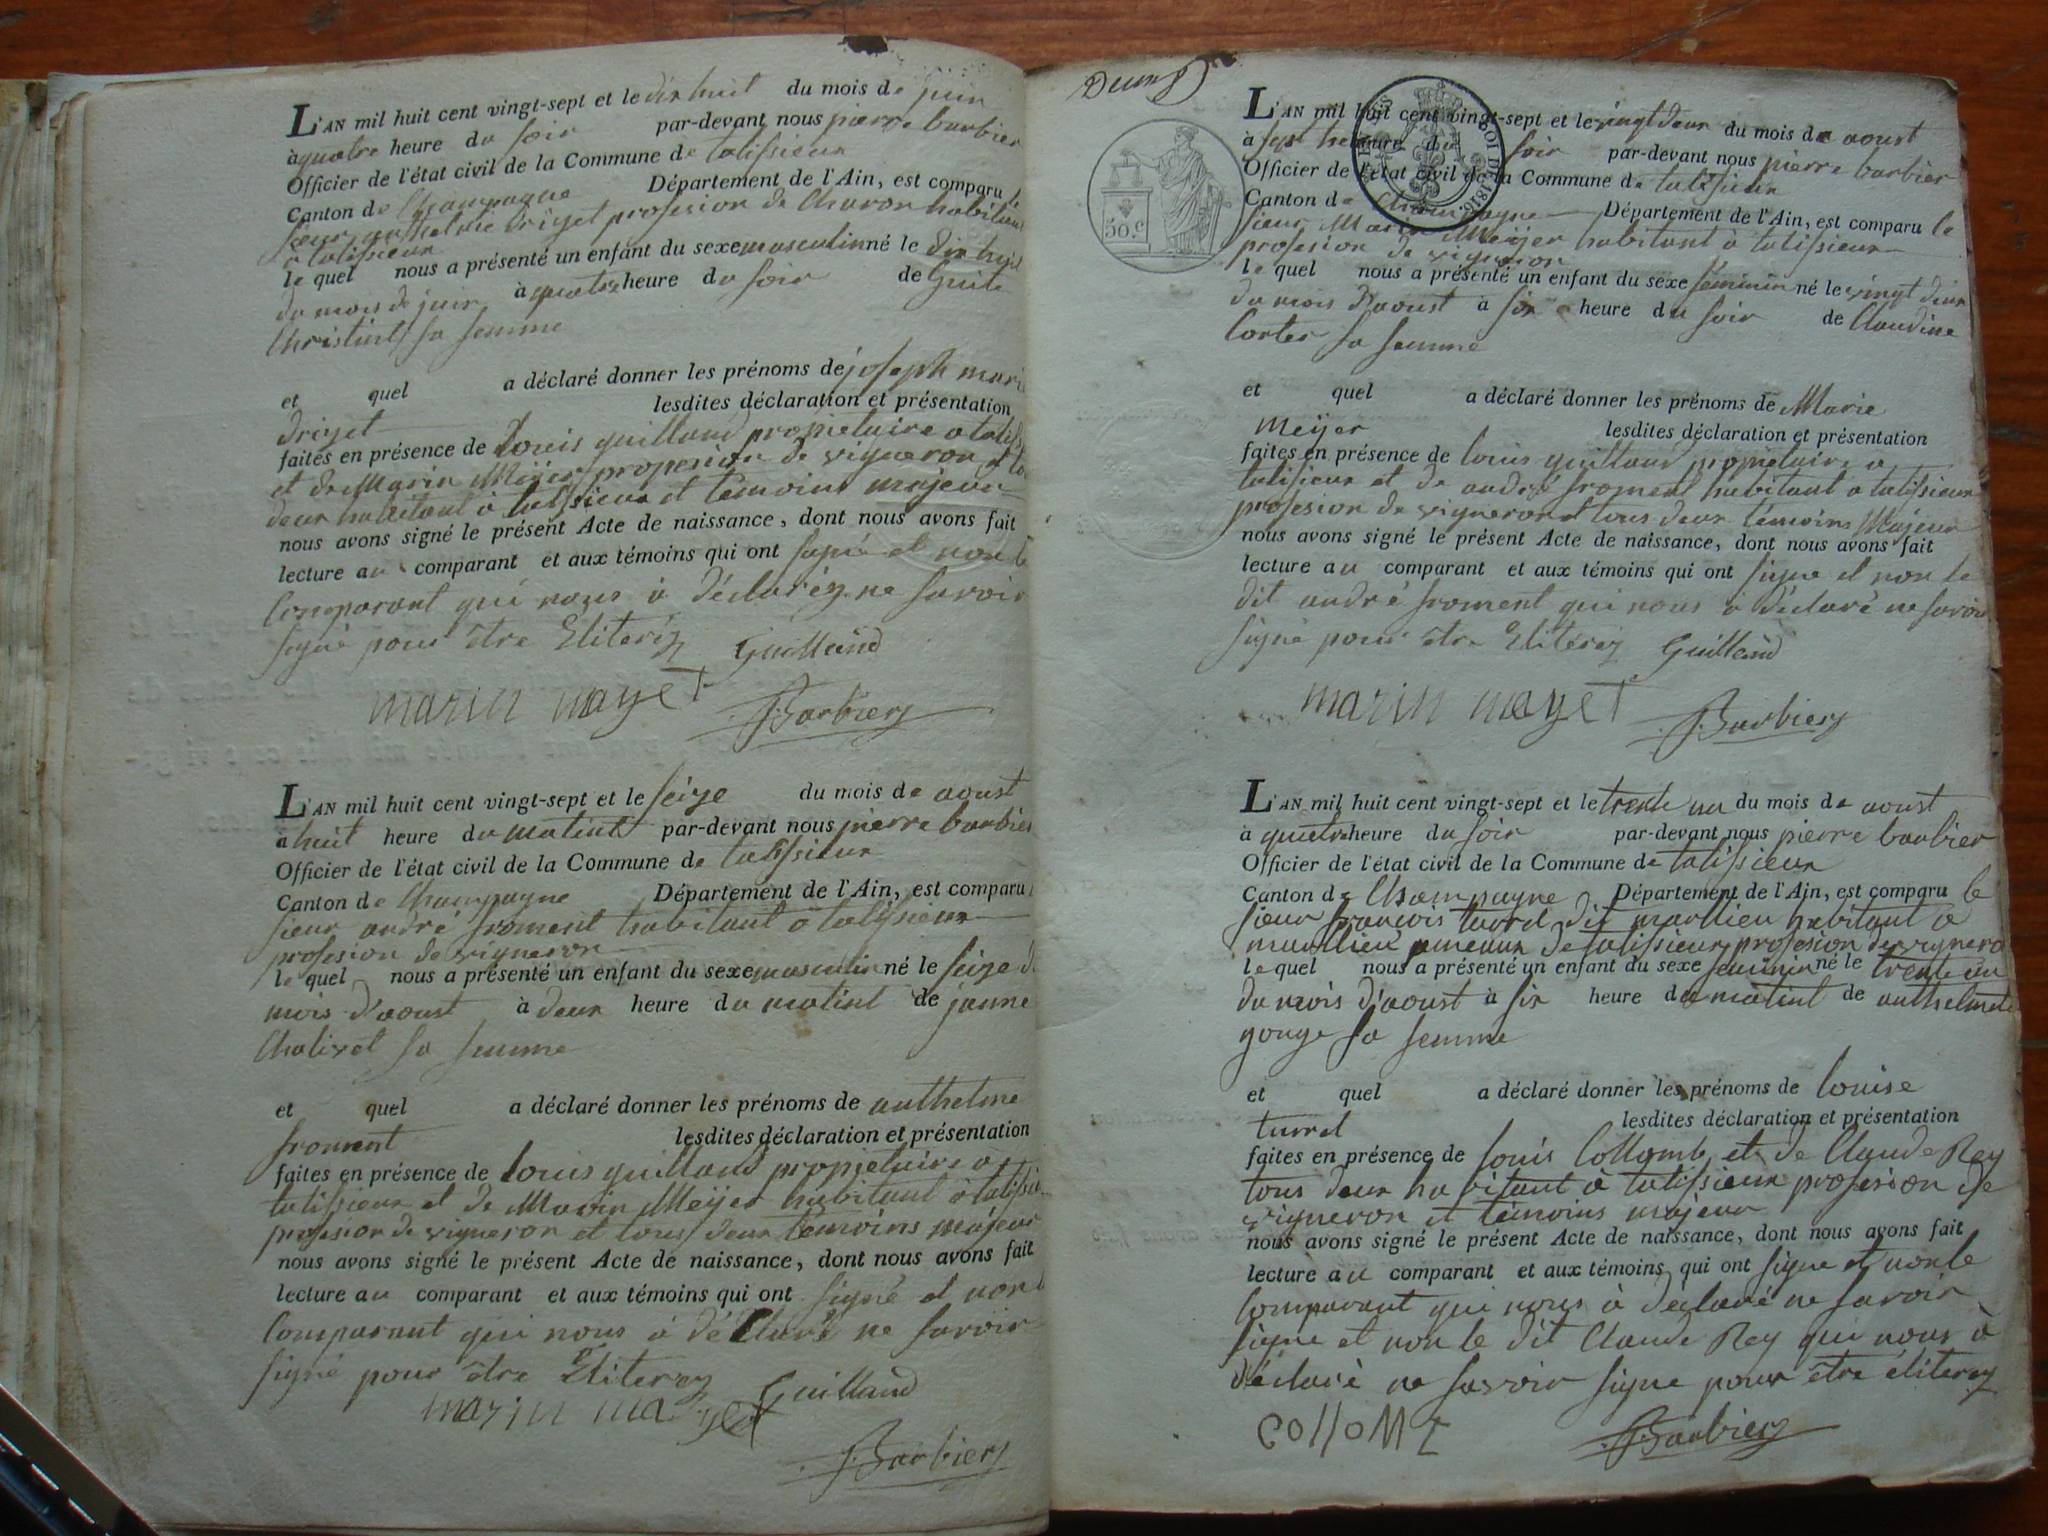 L'AN mil huit cent vingt-sept et le dix huit du mois de juin
à quatre heure du soir par-devant nous pierre barbier
Officier de l'état civil de la Commune de talissieux
Canton de Champagne Département de l'Ain, est comparu
sieur anthelme profession de charon habitant
à talissieux
le quel nous a présenté un enfant du sexe masculin né le dix huit
du mois de juin à quatre heure du soir de
Christint sa femme
et quel a déclaré donner les prénoms de joseph marie
lesdites déclaration et présentation
faites en présence de Louis guilland propietaire a talissieux
et de Marin Meÿer profession de vigneron et
deux habitant à talissieux et témoins majeur
nous avons signé le présent Acte de naissance, dont nous avons fait
lecture au comparant et aux témoins qui ont signé et non le
Comparant qui nous à déclaréz ne savoir
signé pour être Eliteréz Guilland
marin mayet Barbier
L'AN mil huit cent vingt-sept et le seize du mois de aoust
à huit heure du matint par-devant nous pierre barbier
Officier de l'état civil de la Commune de talissieux
Canton de Champagne Département de l'Ain, est comparu
sieur andré froment habitant à talissieux
profesion de vigneron
le quel nous a présenté un enfant du sexe masculin né le seize du
mois d'aoust à deux heure du matint de janne
Chalivet sa femme
et quel a déclaré donner les prénoms de anthelme
froment lesdites déclaration et présentation
faites en présence de Louis guilland propietaire a
talissieux et de Marin Meÿer habitant à talissieux
profesion de vigneron et tous deux témoins majeur
nous avons signé le présent Acte de naissance, dont nous avons fait
lecture au comparant et aux témoins qui ont signé et non le
Comparant qui nous à déClaré ne savoir
signé pour être Eliterez Guilland
marin mayet
Barbier
50.c
ROI DE 1816.
L'AN mil huit cent vingt-sept et le vingt deux du mois de aoust
à sept heure du soir par-devant nous pierre barbier
Officier de l'état civil de la Commune de talissieux
Canton de Champagne Département de l'Ain, est comparu le
sieur Marin Meÿer habitant à talissieux
profesion de vigneron
le quel nous a présenté un enfant du sexe féminin né le vingt deux
du mois d'aoust à six heure du soir de Claudine
Cortes sa femme
et quel a déclaré donner les prénoms de Marie
Meÿer lesdites déclaration et présentation
faites en présence de louis guilland propietaire a
talissieux et de andré froment habitant a talissieux
profesion de vigneron et tous deux témoins Majeur
nous avons signé le présent Acte de naissance, dont nous avons fait
lecture au comparant et aux témoins qui ont signe et non le
dit andré froment qui nous à déclaré ne savoir
signé pour être Eliterez Guilland
marin mayet Barbier
L'AN mil huit cent vingt-sept et le trente un du mois de aoust
à quatre heure du soir par-devant nous pierre barbier
Officier de l'état civil de la Commune de talissieux
Canton de Champagne Département de l'Ain, est comparu le
sieur françois turrel dit marllieu habitant à
marllieu ameaux de talissieux profesion de vignero
le quel nous a présenté un enfant du sexe feminin né le trente un
du mois d'aoust à six heure du matint de anthelmete
gouge sa femme
et quel a déclaré donner les prénoms de louise
turrel lesdites déclaration et présentation
faites en présence de louis Collomb et de Claude Rey
tous deux habitant à talissieux profesion de
vigneron et témoins majeur
nous avons signé le présent Acte de naissance, dont nous avons fait
lecture au comparant et aux témoins qui ont signe et non le
Comparant qui nous à déclaré ne savoir
signe et non le dit Claude Rey qui nous à
déclaré ne savoir signe pour être éliterez
COLLOMB Barbier